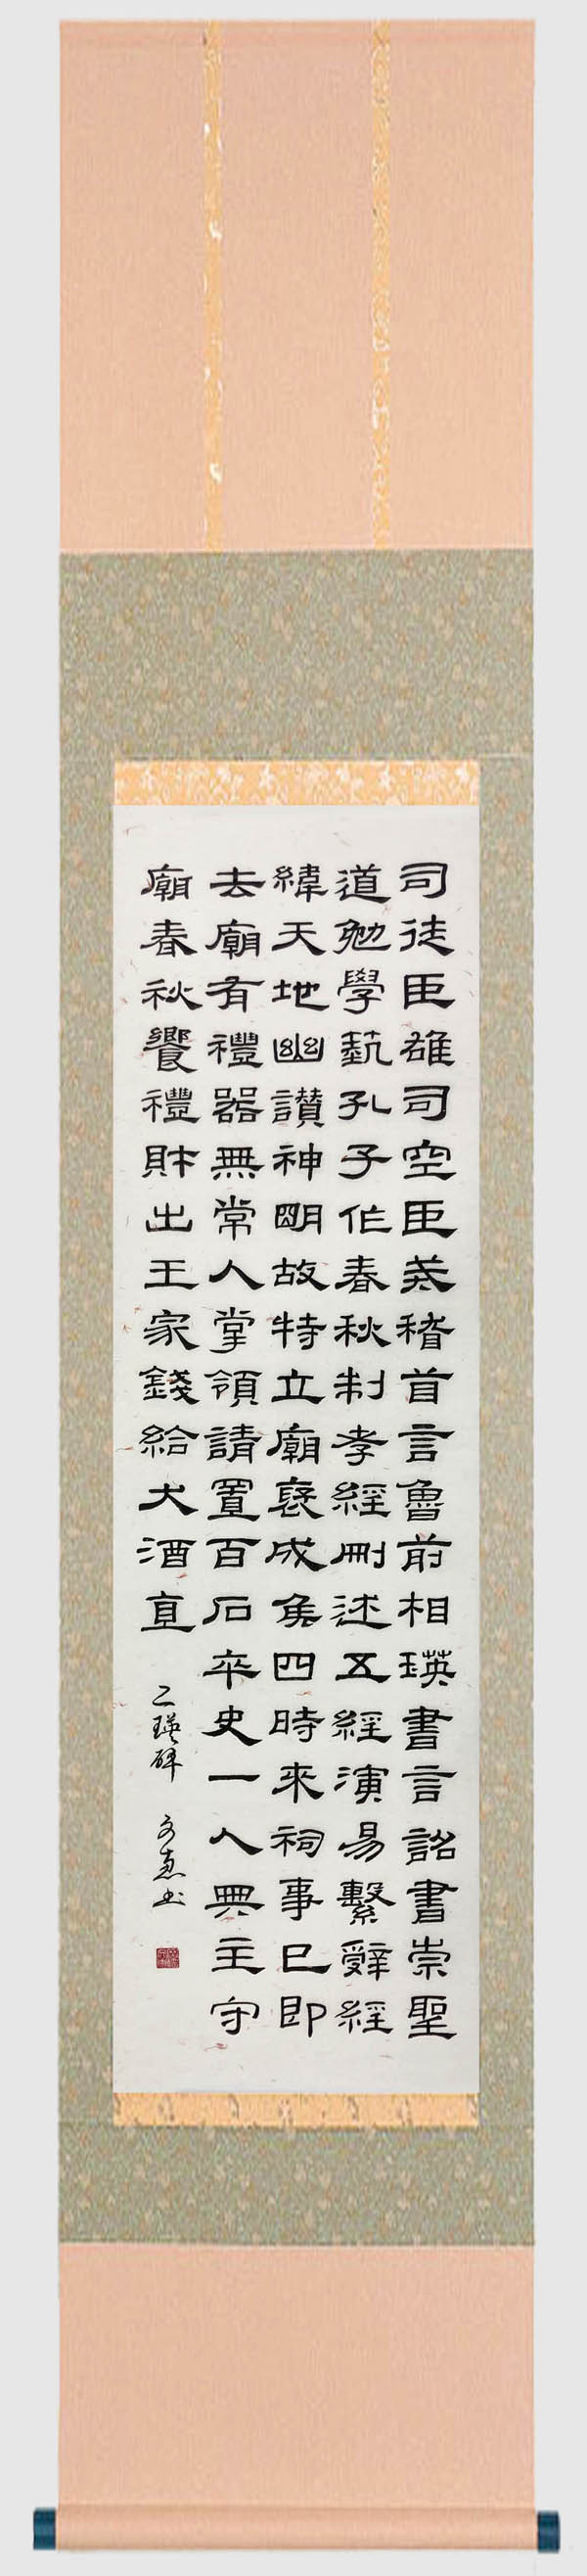 司徒臣雄司空臣戒稽首言魯前相瑛書言詔書崇聖
道勉學藝孔子作春秋制孝經刪述五經演易繫辭經
緯天地幽讚神明故特立廟褒成侯四時來祠事已即
去廟有禮器無常人掌領請置百石卒史一人典主守
廟春秋饗禮財出王家錢給犬酒直
乙瑛碑
書